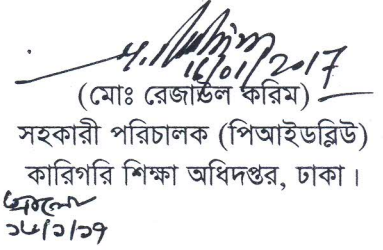 16/01/2017
(মোঃ রেজাউল করিম)
সহকারী পরিচালক (পিআইডব্লিউ)
কারিগরি শিক্ষা অধিদপ্তর, ঢাকা।